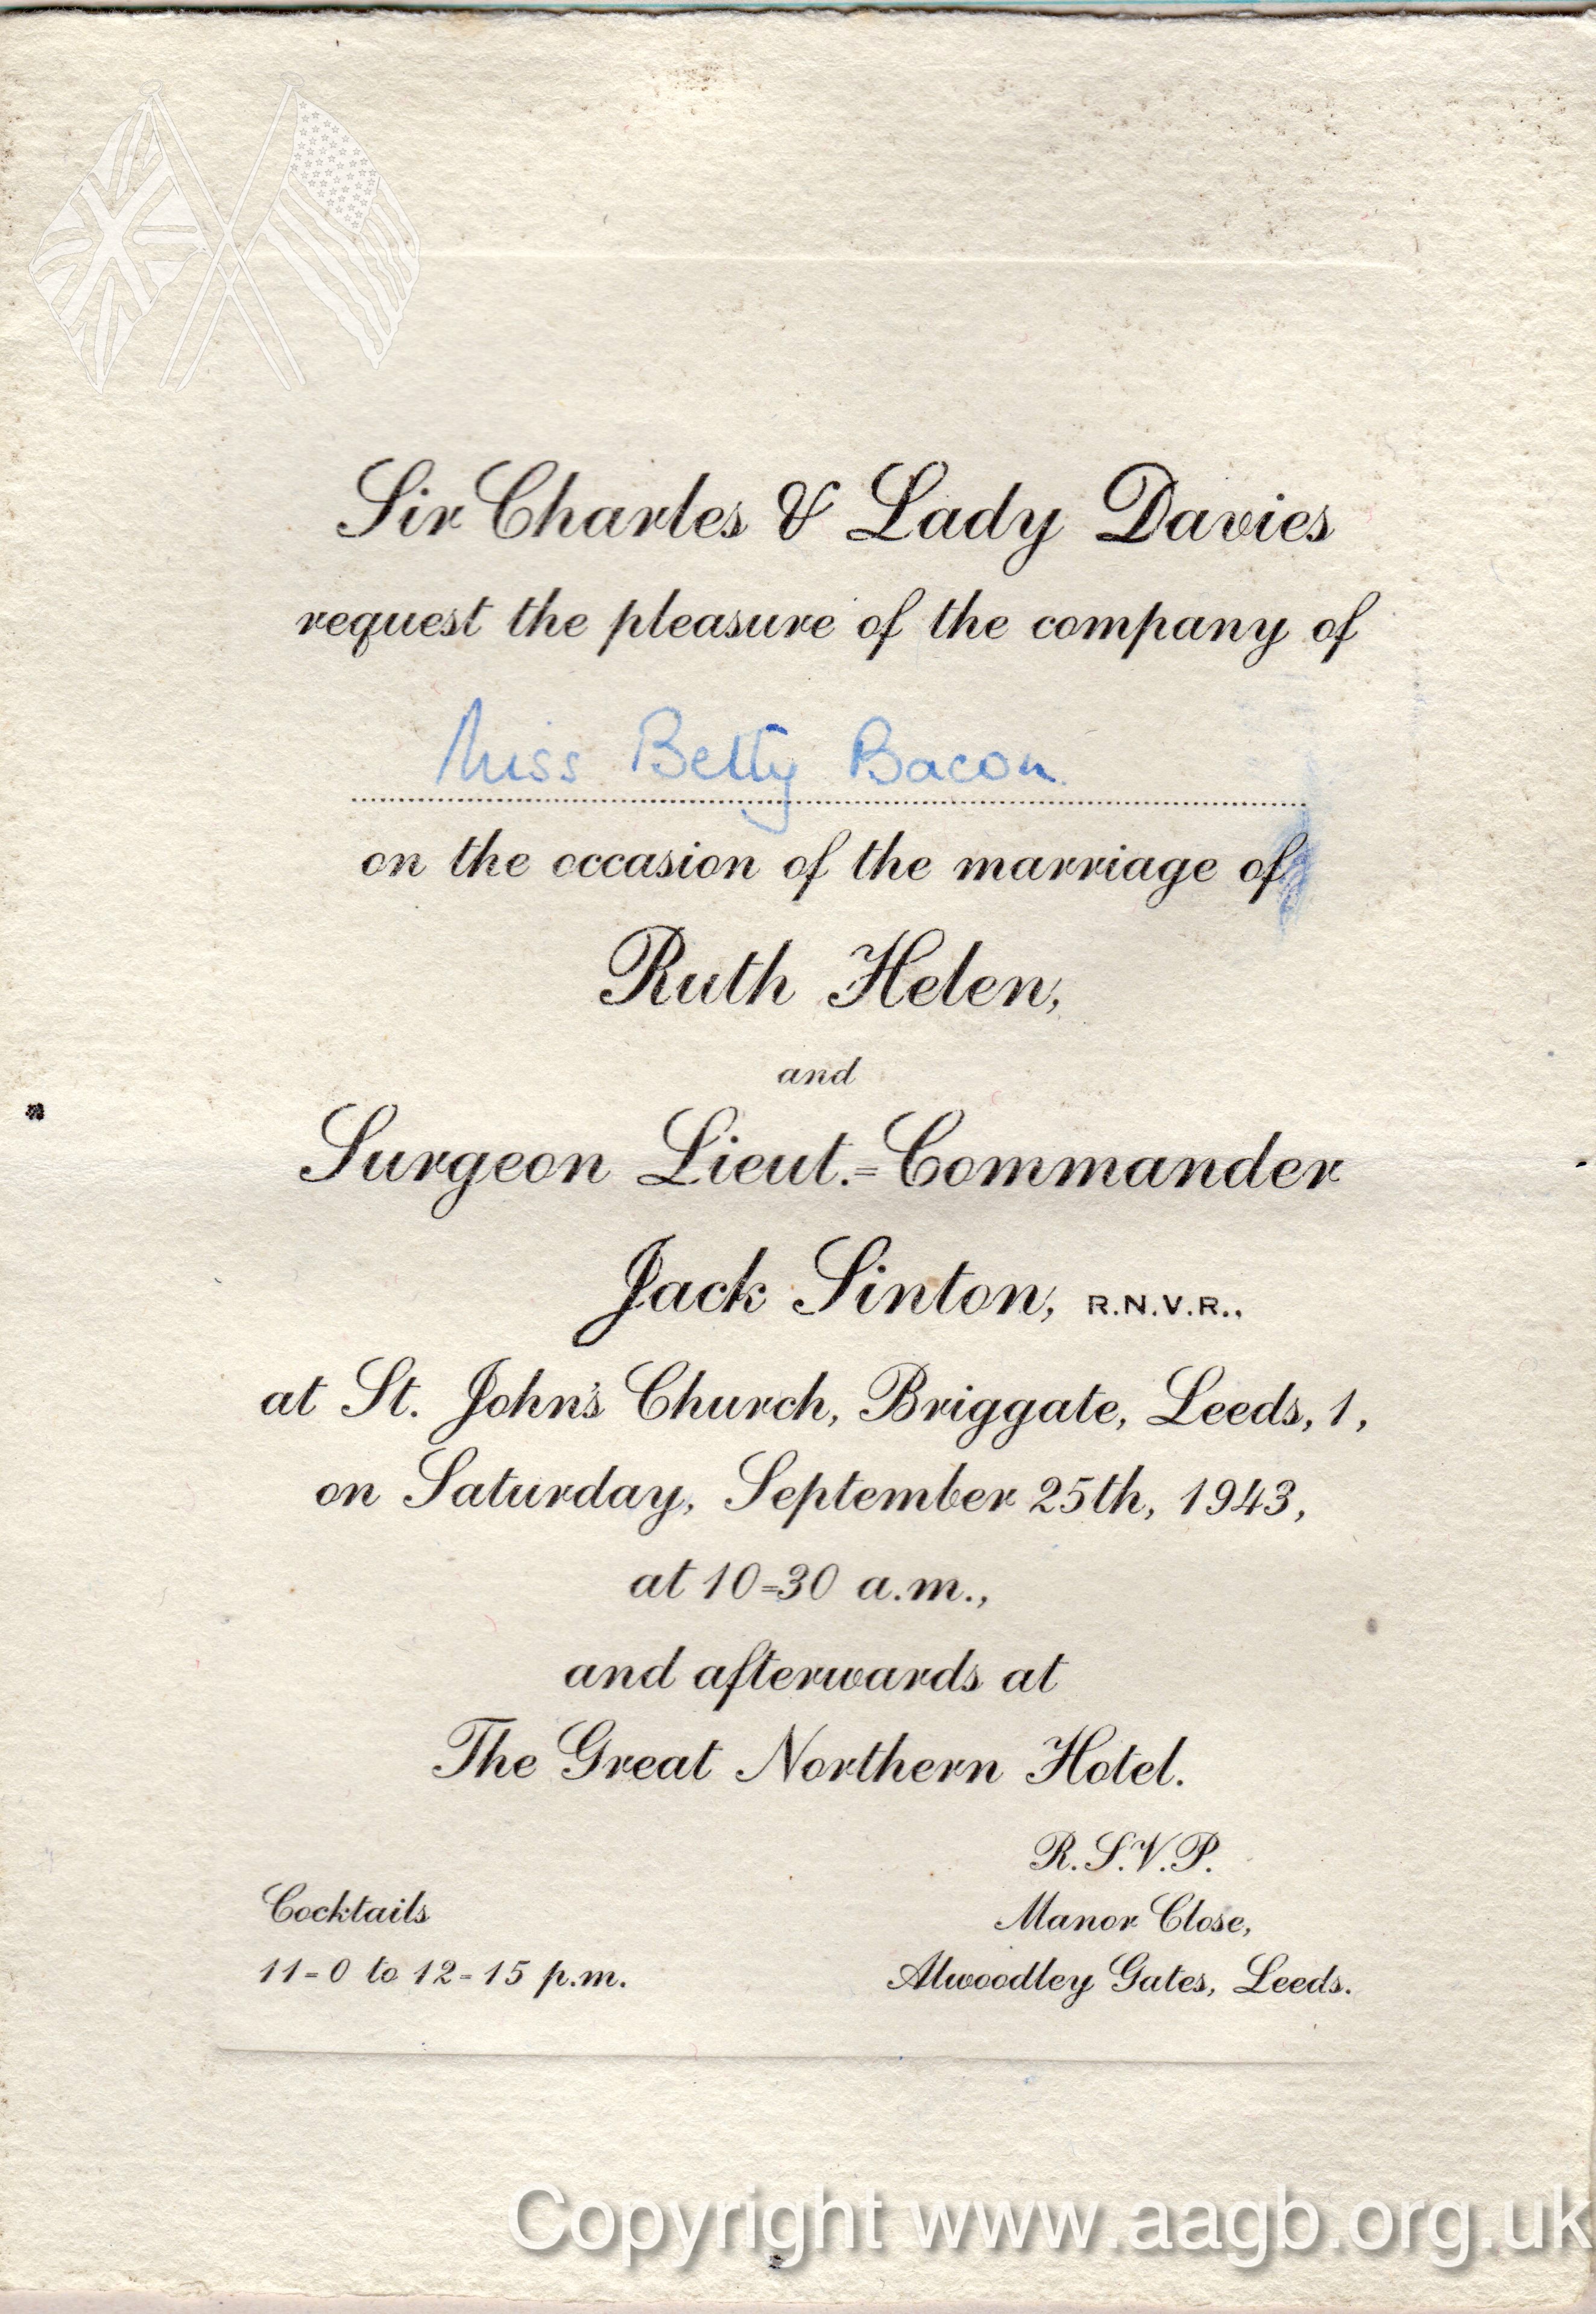 Sir Charles & Lady Davies
request the pleasure of the company of
Miss Betty Bacon
on the occasion of the marriage of
Ruth Helen,
and
Surgeon Lieut.-Commander
Jack Sinton, R.N.V.R.,
at St. John's Church, Briggate, Leeds, 1,
on Saturday, September 25th, 1943,
at 10-30 a.m.,
and afterwards at
The Great Northern Hotel.
R.S.V.P.
Cocktails
11-0 to 12-15 p.m.
Manor Close,
Alwoodley Gates, Leeds.
Copyright www.aagb.org.uk